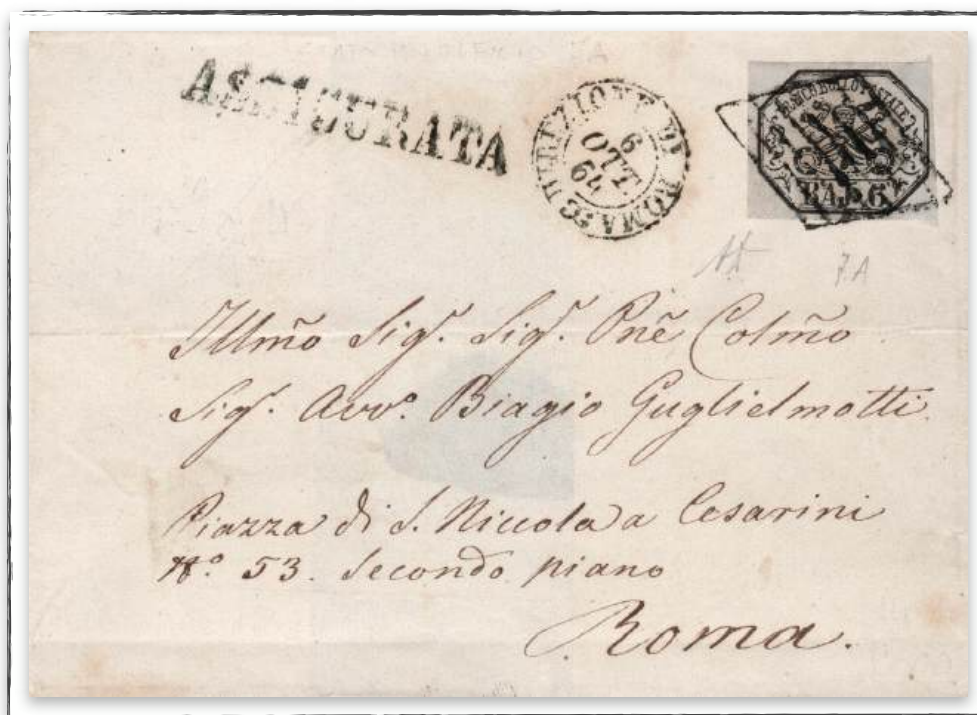 ASSICURATA
DIREZIONE DI ROMA
9
OTT
64
FRANCO BOLLO POSTALE
BAJ. 6
7A
Illm̃o Sigr. Sigr. Pñe Colm̃o
Sigr. Avvo. Biagio Guglielmotti
Piazza di S. Niccola a Cesarini
No. 53. Secondo piano
Roma.